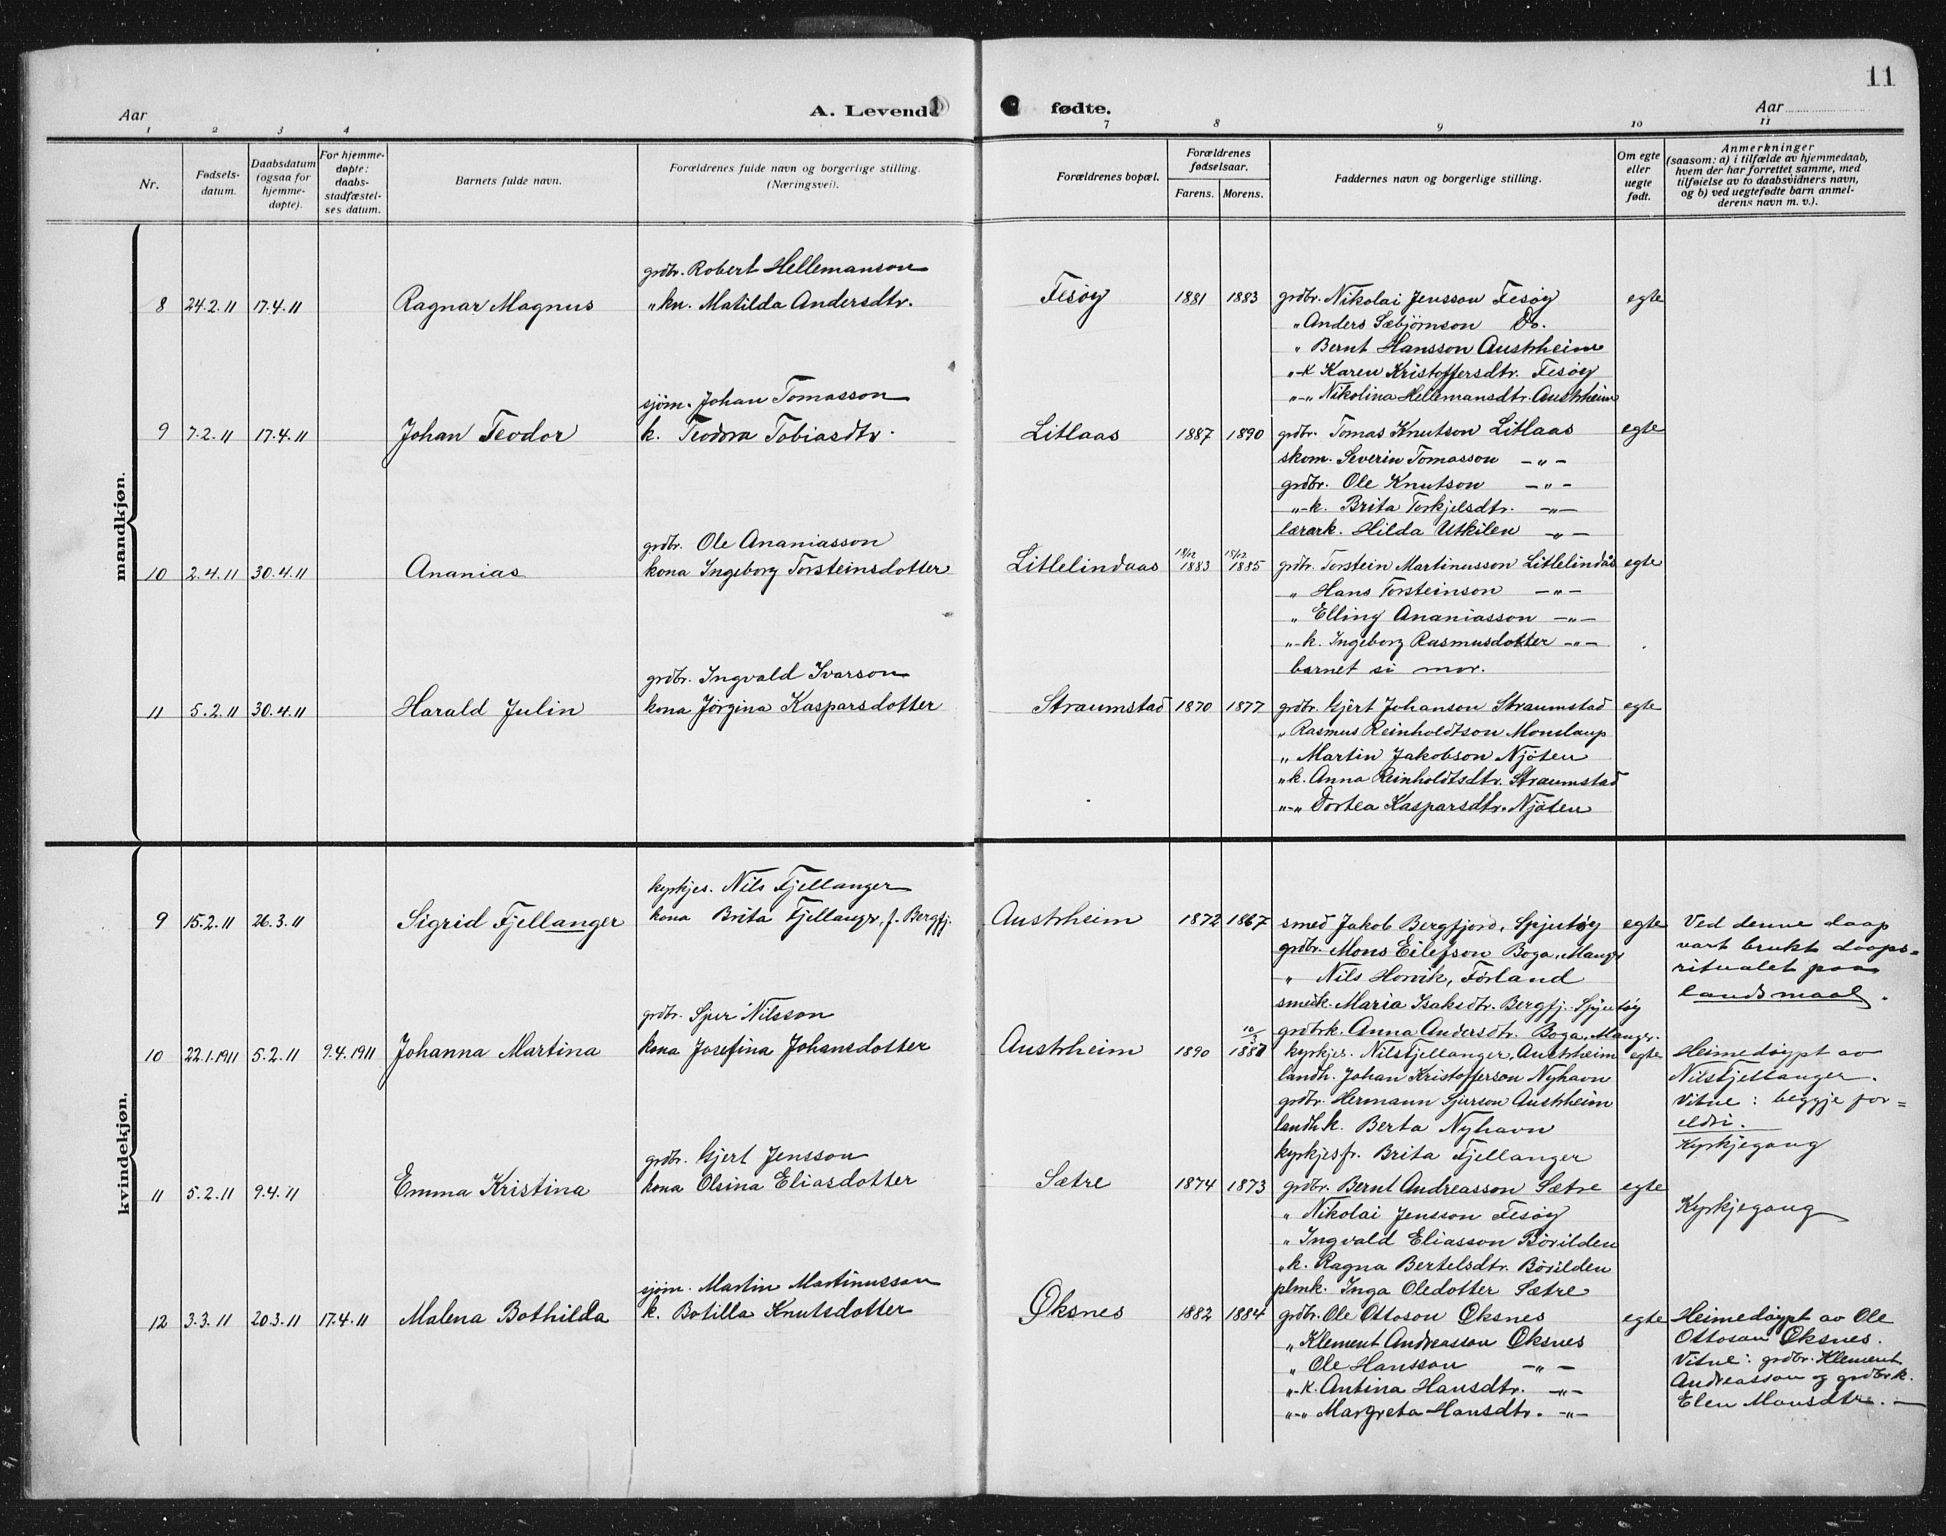 11
Aar
A. Levende
fødte.
Aar
1 2 3 4 7 8 9 10 11
Nr.
Fødsels-
datum.
Daabsdatum
(ogsaa for
hjemme-
døpte).
For hjemme-
døpte:
daabs-
stadfæstel-
ses datum.
Barnets fulde navn.
Forældrenes fulde navn og borgerlige stilling.
(Næringsvei).
Forældrenes bopæl.
Forældrenes
fødselsaar.
Farens. Morens.
Faddernes navn og borgerlige stilling.
Om egte
eller
uegte
født.
Anmerkninger
(saasom: a) i tilfælde av hjemmedaab,
hvem der har forrettet samme, med
tilføielse av to daabsvidners navn,
og b) ved uegtefødte barn anmel-
derens navn m. v.).
mandkjøn.
grdbr. Robert Hellemanson
8 24.2.11 17.4.11 Ragnar Magnus "kn. Matilda Andersdtr. Fesøy 1881 1883 grdbr. Nikolai Jensson Fesøy egte
" Anders Sæbjørnson Do.
" Bernt Hansson Austrheim
"-k Karen Kristoffersdtr. Fesøy
"-" Nikolina Hellemansdtr. Austrheim
sjøm. Johan Tomasson
9 7.2.11 17.4.11 Johan Teodor k. Teodora Tobiasdtr. Litlaas 1887 1890 grdbr. Tomas Knutson Litlaas egte
skom. Severin Tomasson -"-
grdbr. Ole Knutson -"-
"-k. Brita Torkjelsdtr. -"-
lærark. Hilda Utkilen -"-
grdbr. Ole Ananiasson
10 2.4.11 30.4.11 Ananias kona Ingeborg Torsteinsdotter Litlelindaas 1883 15/12 1885 grdbr. Torstein Martinusson Litlelindås egte
" Hans Torsteinson -"-
" Elling Ananiasson -"-
"-k. Ingeborg Rasmusdotter -"-
barnet si mor.
grdbr. Ingvald Ivarson
11 5.2.11 30.4.11 Harald Julin kona Jørgina Kasparsdotter Straumstad 1870 1877 grdbr. Gjert Johanson Straumstad egte
" Rasmus Reinholdtson Monslaup
" Martin Jakobson Njøten
"k. Anna Reinholdtsdtr. Straumstad
"-" Dortea Kasparsdtr. Njøten
kvindekjøn.
kyrkjes. Nils Fjellanger
9 15.2.11 26.3.11 Sigrid Fjellanger kona Brita Fjellangr, f. Bergfj. Austrheim 1872 1867 smed Jakob Bergfjord, Spjutøy egte Ved denne daap
grdbr. Mons Eilefson Boga, Mangr vart brukt daaps-
" Nils Horvik, Førland ritualet paa
smedk. Maria Isaksdtr. Bergfj. Spjutøy landsmaal.
grdbrk. Anna Andersdtr. Boga, Mangr.
grdbr. Sjur Nilsson
10 22.1.1911 5.2.11 9.4.1911 Johanna Martina kona Josefina Johansdotter Austrheim 1890 1887 kyrkjes. Nils Fjellanger, Austrheim egte Heimedøypt av
landh. Johan Kristofferson Nyhavn Nils Fjellanger.
grdbr. Hermann Sjurson Austrheim Vitne: beggje for-
landhk. Berta Nyhavn eldri.
kyrkjesfr. Brita Fjellanger Kyrkjegang
grdbr. Gjert Jensson
11 5.2.11 9.4.11 Emma Kristina kona Olsina Eliasdotter Sætre 1874 1873 grdbr. Bernt Andreasson Sætre egte
" Nikolai Jensson Fesøy Kyrkjegang
" Ingvald Eliasson Børilden
"k. Ragna Bertelsdtr. Børilden
plmk. Inga Oledotter Sætre
sjøm. Martin Martinusson
12 3.3.11 20.3.11 17.4.11 Malena Bothilda k. Botilla Knutsdotter Øksnes 1882 1884 grdbr. Ole Ottoson Øksnes egte Heimedøypt av Ole
" Klement Andreasson Øksnes Ottosan Øksnes.
" Ole Hansson -"- Vitne: grdbr. Klement
"-k. Antina Hansdtr. -"- Andreasson og grdbrk.
"-" Margreta Hansdtr. -"- Elen Monsdtr.